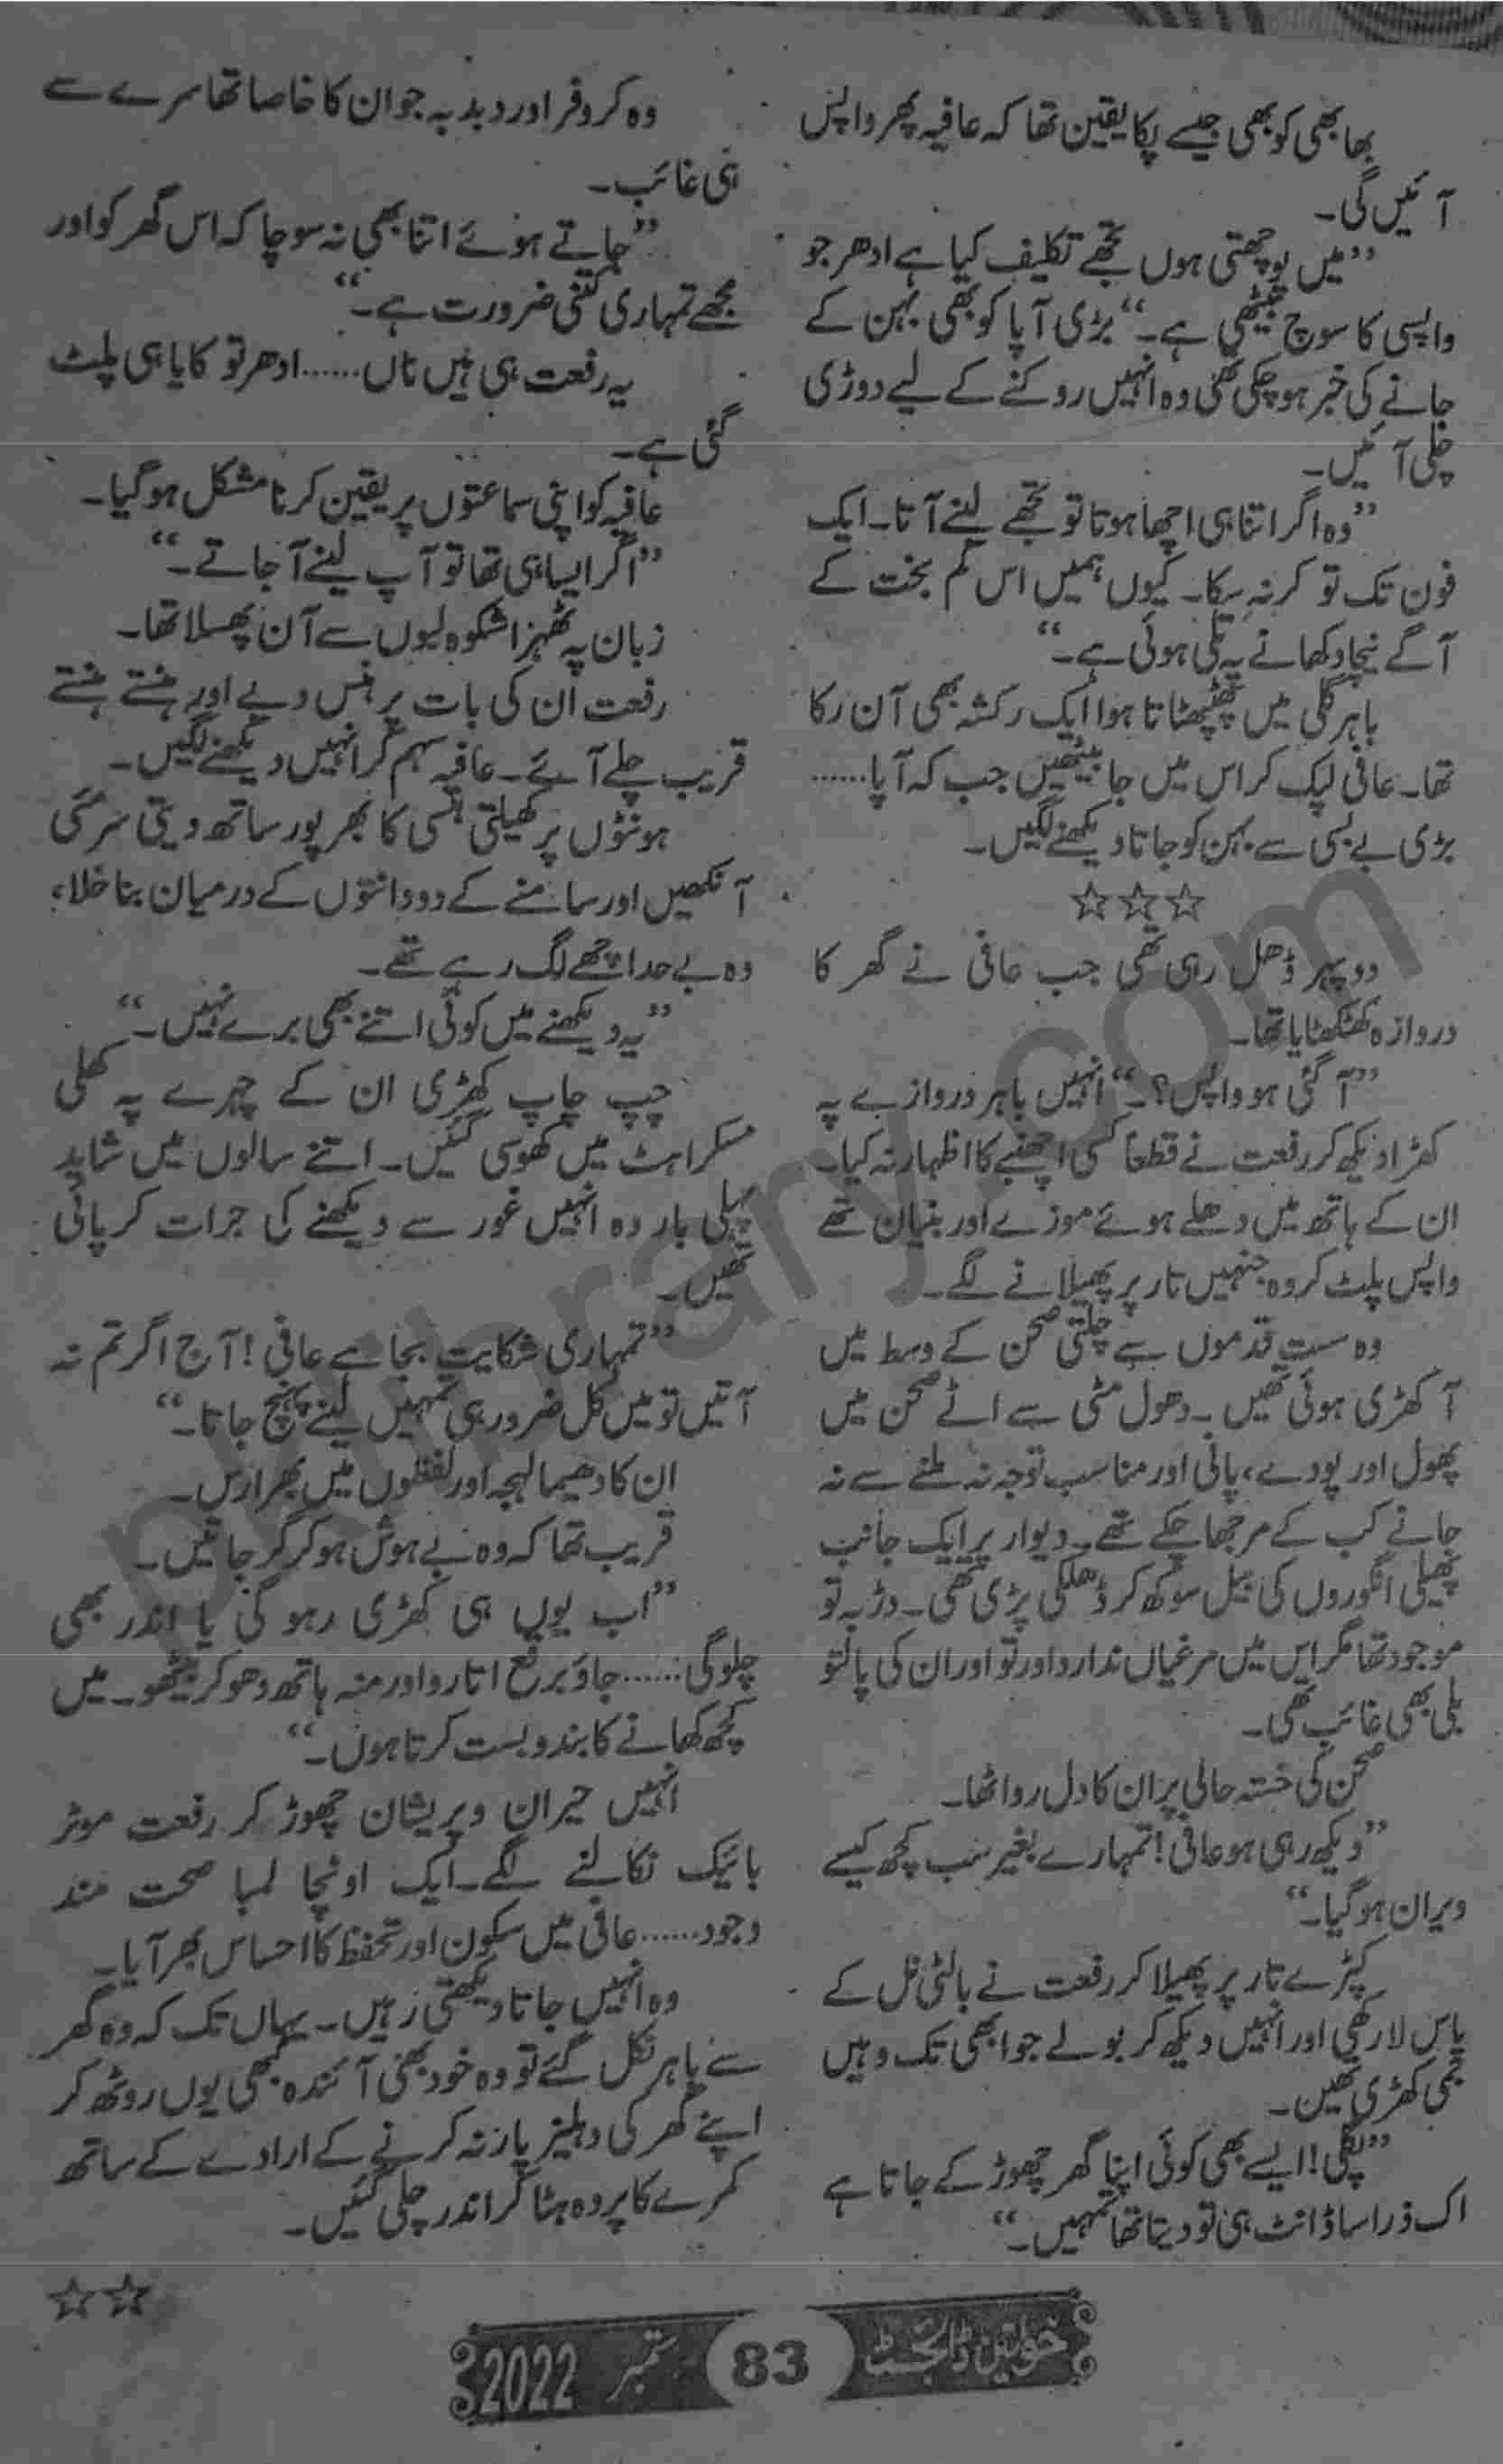 بھابھی کو بھی جیسے پکا یقین تھا کہ عافیہ پھر واپس
آئیں گی۔
”میں پوچھتی ہوں تجھے تکلیف کیا ہے ادھر جو
واپسی کا سوچ بیٹھی ہے۔“ بڑی آپا کو بھی بہن کے
جانے کی خبر ہو چکی تھی وہ انہیں روکنے کے لیے دوڑی
چلی آئیں۔
”وہ اگر اتنا ہی اچھا ہوتا تو تجھے لینے آتا۔ ایک
فون تک تو کر نہ سکا۔ کیوں ہمیں اس کم بخت کے
آگے نیچا دکھانے پہ تلی ہوئی ہے۔“
باہر گلی میں پھٹپھٹاتا ہوا ایک رکشہ بھی آن رکا
تھا۔ عافی لپک کر اس میں جا بیٹھیں جب کہ آپا......
بڑی بے بسی سے بہن کو جاتا دیکھنے لگیں۔
☆☆☆
دوپہر ڈھل رہی تھی جب عافی نے گھر کا
دروازہ کھٹکھٹایا تھا۔
”آ گئی ہو واپس؟۔“ انہیں باہر دروازے پہ
کھڑا دیکھ کر رفعت نے قطعاً کسی اچنبے کا اظہار نہ کیا۔
ان کے ہاتھ میں دھلے ہوئے موزے اور بنیان تھے
واپس پلٹ کر وہ جنہیں تار پر پھیلانے لگے۔
وہ ست قدموں سے چلتی صحن کے وسط میں
آ کھڑی ہوئی تھیں۔ دھول مٹی سے اٹے صحن میں
پھول اور پودے، پانی اور مناسب توجہ نہ ملنے سے نہ
جانے کب کے مرجھا چکے تھے۔ دیوار پر ایک جانب
پھیلی انگوروں کی بیل سوکھ کر ڈھلکی پڑی تھی۔ دڑبہ تو
موجود تھا مگر اس میں مرغیاں ندارد اور تو اور ان کی پالتو
بلی بھی غائب تھی۔
صحن کی خستہ حالی پر ان کا دل رو اٹھا۔
”دیکھ رہی ہو عافی! تمہارے بغیر سب کچھ کیسے
ویران ہو گیا۔“
کپڑے تار پر پھیلا کر رفعت نے بالٹی نل کے
پاس لا رکھی اور انہیں دیکھ کر بولے جو ابھی تک وہیں
جمی کھڑی تھیں۔
”پگلی! ایسے بھی کوئی اپنا گھر چھوڑ کے جاتا ہے
اک ذرا سا ڈانٹ ہی تو دیتا تھا تمہیں۔“
وہ کروفر اور دبدبہ جو ان کا خاصا تھا سرے سے
ہی غائب۔
”جاتے ہوئے اتنا بھی نہ سوچا کہ اس گھر کو اور
مجھے تمہاری کتنی ضرورت ہے۔“
یہ رفعت ہی ہیں ناں...... ادھر تو کایا ہی پلٹ
گئی ہے۔
عافیہ کو اپنی سماعتوں پر یقین کرنا مشکل ہو گیا۔
”اگر ایسا ہی تھا تو آپ لینے آ جاتے۔“
زبان پہ ٹھہرا شکوہ لبوں سے آن پھسلا تھا۔
رفعت ان کی بات پر ہنس دیے اور ہنستے ہنستے
قریب چلے آئے۔ عافیہ سہم کر انہیں دیکھنے لگیں۔
ہونٹوں پر کھیلتی ہنسی کا بھرپور ساتھ دیتی سرمئی
آنکھیں اور سامنے کے دو دانتوں کے درمیان بنا خلاء،
وہ بے حد اچھے لگ رہے تھے۔
”یہ دیکھنے میں کوئی اتنے بھی برے نہیں۔“
چپ چاپ کھڑی ان کے چہرے پہ کھلی
مسکراہٹ میں کھو سی گئیں۔ اتنے سالوں میں شاید
پہلی بار وہ انہیں غور سے دیکھنے کی جرات کر پائی
تھیں۔
”تمہاری شکایت بجا ہے عافی! آج اگر تم نہ
آتیں تو میں کل ضرور ہی تمہیں لینے پہنچ جاتا۔“
ان کا دھیما لہجہ اور لفظوں میں بھرا رس۔
قریب تھا کہ وہ بے ہوش ہو کر گر جاتیں۔
”اب یوں ہی کھڑی رہو گی یا اندر بھی
چلو گی...... جاؤ برقع اتارو اور منہ ہاتھ دھو کر بیٹھو۔ میں
کچھ کھانے کا بندوبست کرتا ہوں۔“
انہیں حیران و پریشان چھوڑ کر رفعت موٹر
بائیک نکالنے لگے۔ ایک اونچا لمبا صحت مند
وجود...... عافی میں سکون اور تحفظ کا احساس بھر آیا۔
وہ انہیں جاتا دیکھتی رہیں۔ یہاں تک کہ وہ گھر
سے باہر نکل گئے تو وہ خود بھی آئندہ کبھی یوں روٹھ کر
اپنے گھر کی دہلیز پار نہ کرنے کے ارادے کے ساتھ
کمرے کا پردہ ہٹا کر اندر چلی گئیں۔
☆☆
خواتین ڈائجسٹ 83 ستمبر 2022
pklibrary.com